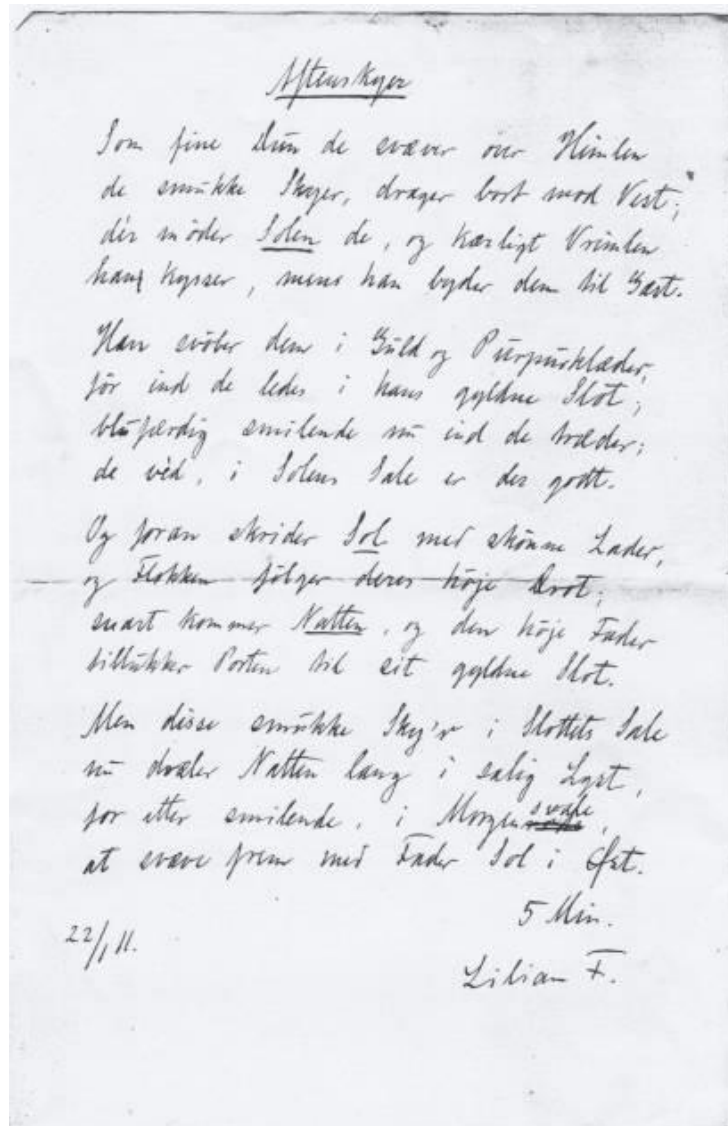 Aftenskyer
Som fine Dun de svæver over Himlen
de smukke Skyer, drager bort mod Vest;
dér möder Solen de, og kærligt Vrimlen
han kysser, mens han byder dem til Gæst.
Han svöber dem i Guld og Purpurklæder,
för ind de ledes i hans gyldne Slot;
blufærdig smilende nu ind de træder;
de véd, i Solens Sale er der godt.
Og foran skrider Sol med skönne Lader,
og Flokken fölger deres höje Drot;
snart kommer Natten, og den höje Fader
tillukker Porten til sit gyldne Slot.
Men disse smukke Sky'r i Slottets Sale
nu dvæler Natten lang i salig Lyst,
for atter smilende, i Morgen svale,
at svæve frem med Fader Sol i Øst.
5 Min.
22/1 11.
Lilian F.